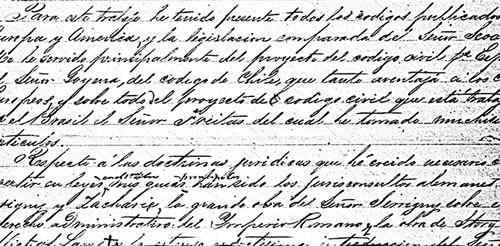 Para este trabajo he tenido presente todos los codigos publicados
Europa y America, y la legislacion comparada del Señor Seoa
Me he servido principalmente del proyecto del codigo civil pa Esp
el Señor Goyena, del codigo de Chile, que tanto aventaja a los
europeos, y sobre todo del proyecto de codigo civil que está trab
el Brasil el Señor Freitas del cual he tomado muchis
articulos.
Respecto a las doctrinas juridicas que he creido necesario
vertir en leyes mis guias principales han sido los jurisconsultos alemanes
vigny y Zacharie, la grande obra del Señor Serrigny sobre
derecho administrativo del Imperio Romano, y la obra de Story